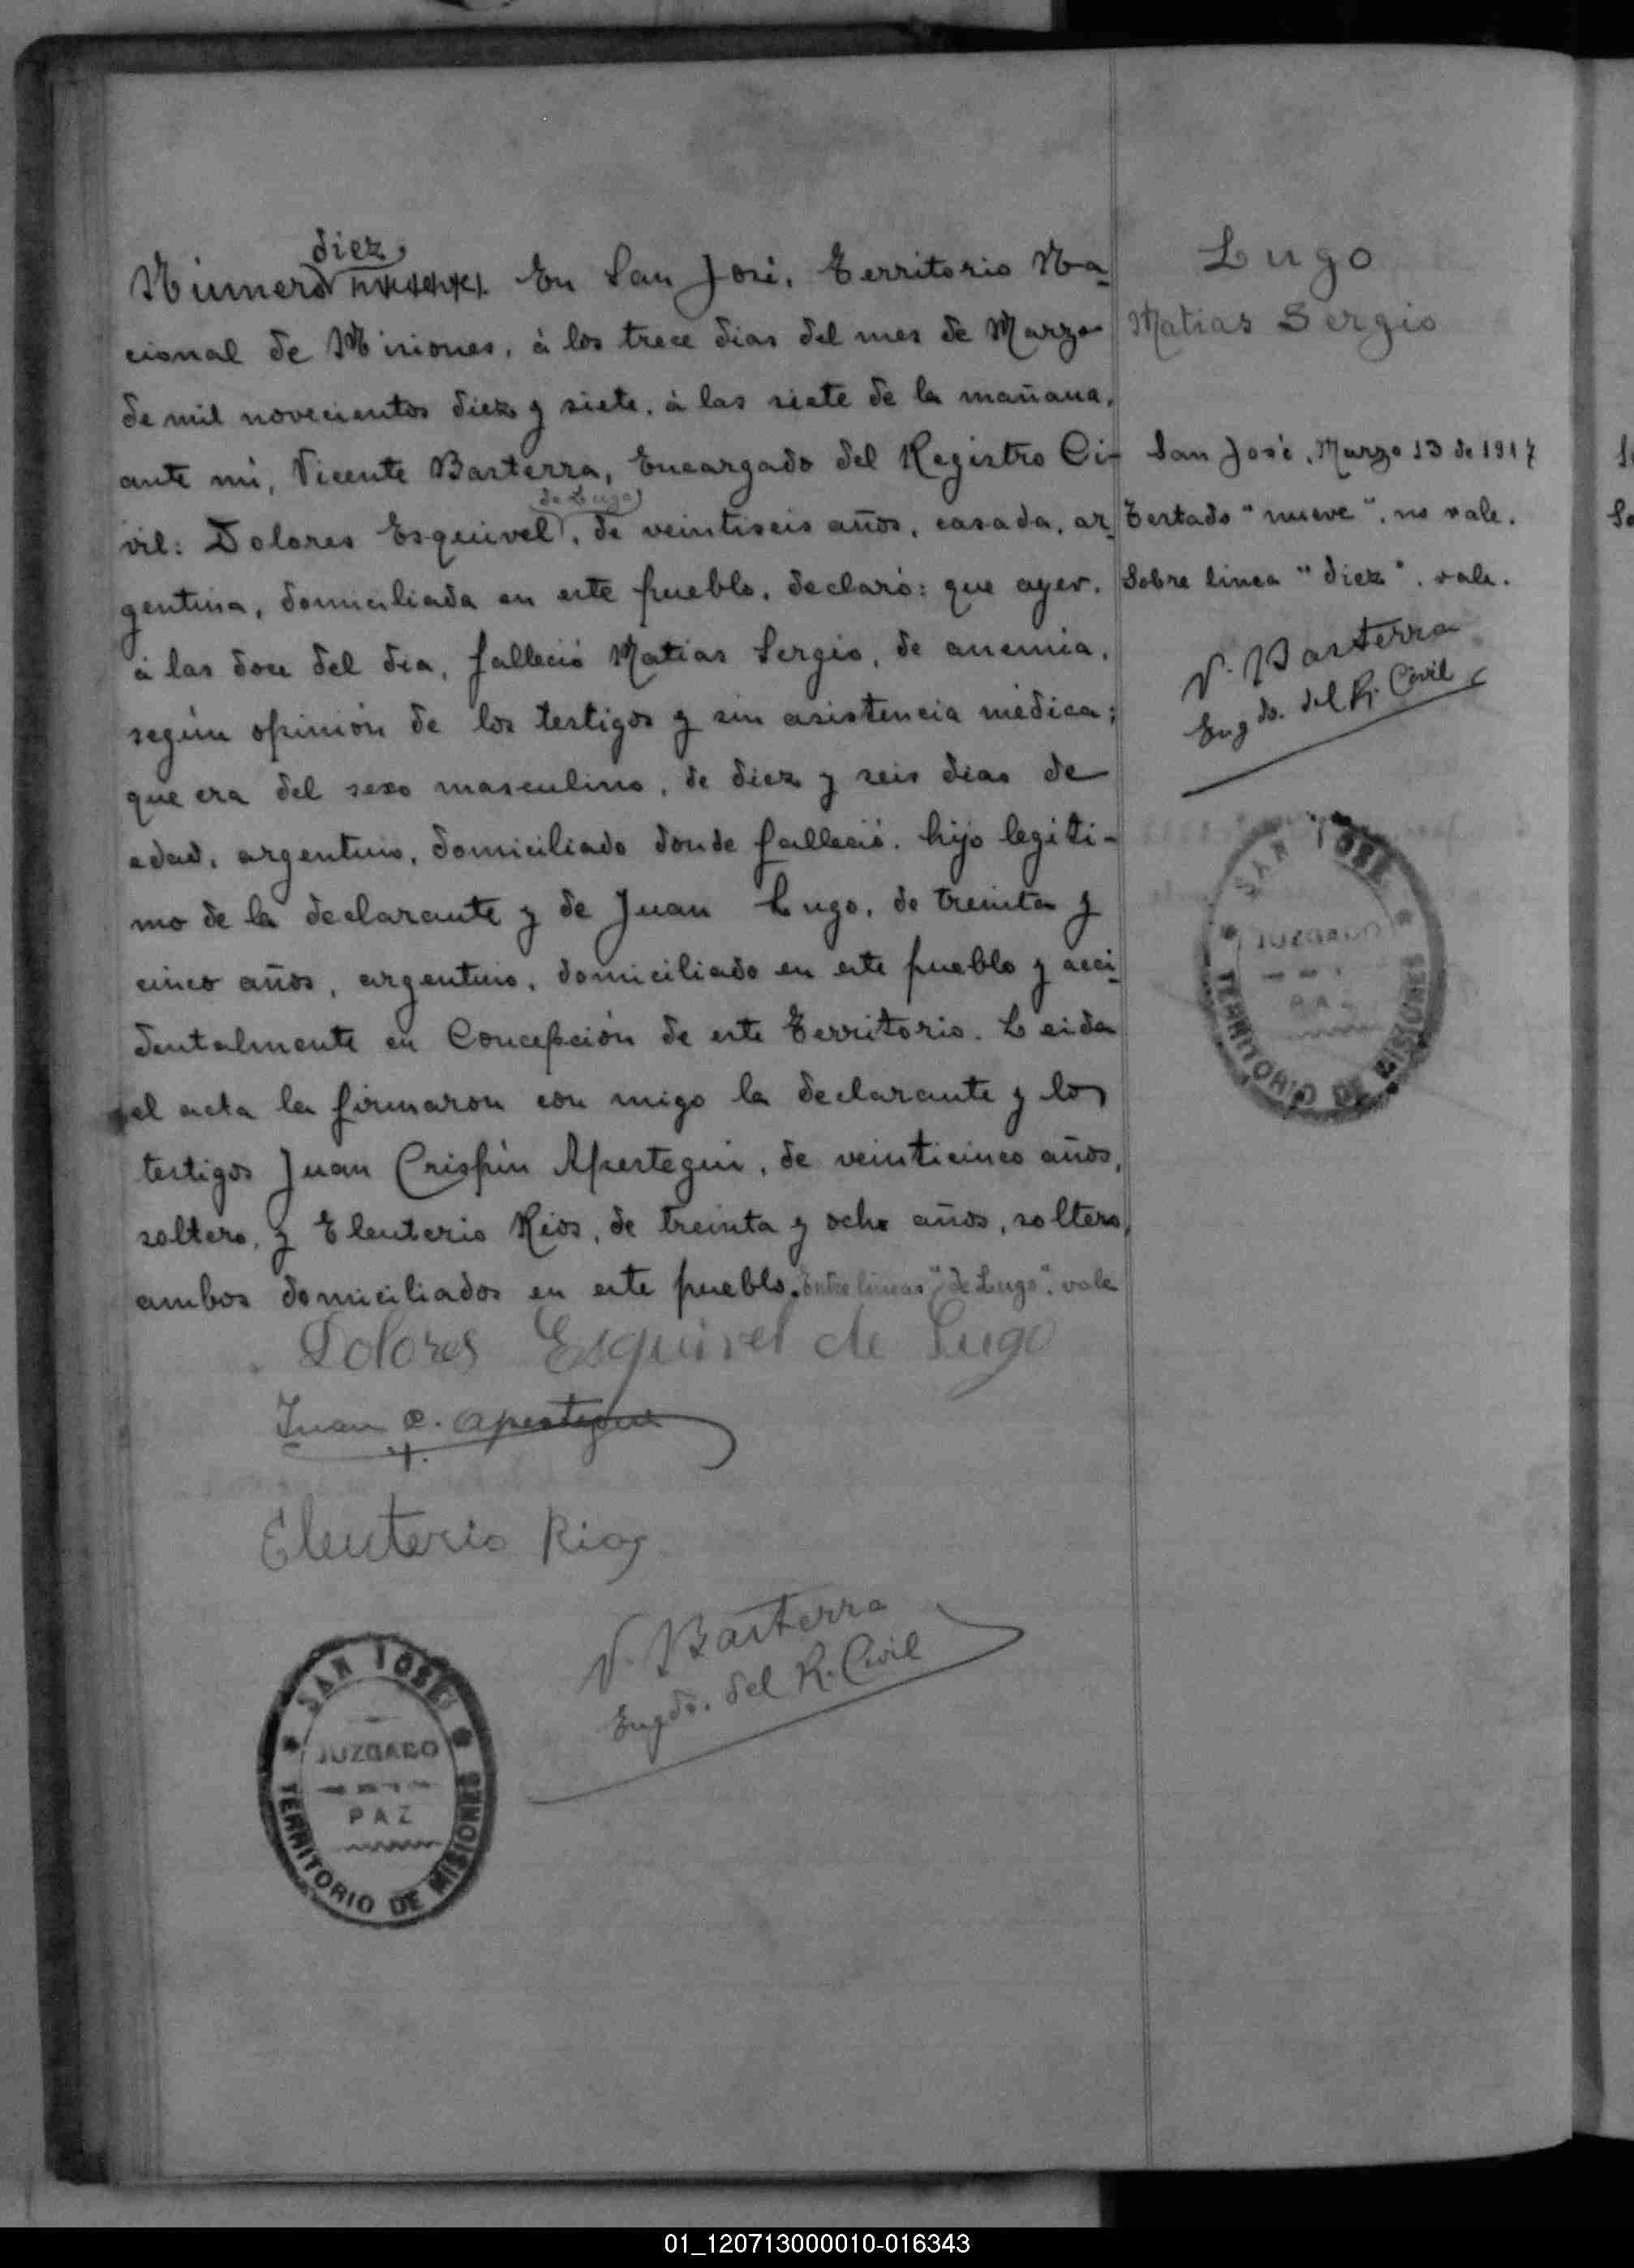 diez,
Número nueve. En San José, Territorio Na-
cional de Misiones, à los trece dias del mes de Marzo
de mil novecientos diez y siete, à las siete de la mañana,
ante mi, Vicente Basterra, Encargado del Registro Ci-
de Lugo
vil: Dolores Esquivel, de veintiseis años, casada, ar-
gentina, domiciliada en este pueblo, declaró: que ayer,
à las doce del dia, falleció Matias Sergio, de anemia,
según opinión de los testigos y sin asistencia médica;
que era del sexo masculino, de diez y seis dias de
edad, argentino, domiciliado donde falleció, hijo legiti-
mo de la declarante y de Juan Lugo, de treinta y
cinco años, argentino, domiciliado en este pueblo y acci-
dentalmente en Concepción de este Territorio. Leida
el acta la firmaron con migo la declarante y los
testigos Juan Crispín Apestegui, de veinticinco años,
soltero, y Eleuterio Rios, de treinta y ocho años, soltero,
ambos domiciliados en este pueblo. Entre lineas "de Lugo", vale
Dolores Esquivel de Lugo
Juan C. Apestegui
Eleuterio Rios
V. Basterra
Engdo. del R. Civil
SAN JOSE
JUZGADO
PAZ
TERRITORIO DE MISIONES
Lugo
Matias Sergio
San José, Marzo 13 de 1917
Testado "nueve", no vale.
Sobre linea "diez", vale.
V. Basterra
Engdo. del R. Civil
SAN JOSE
JUZGADO
PAZ
TERRITORIO DE MISIONES
01_120713000010-016343